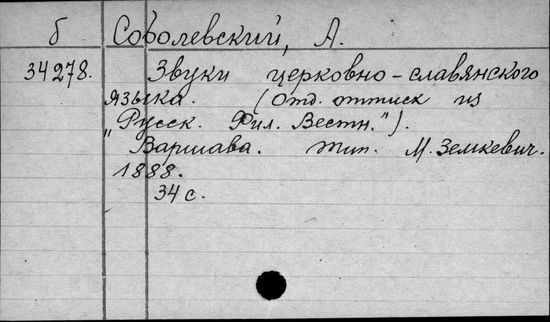 б Соболевский, А.
34278. Звуки церковно-славянского
языка. (Отд. оттиск из
„Русск. Фил. Вестн.").
Варшава. Тип. М. Земкевич.
1888.
34 с.